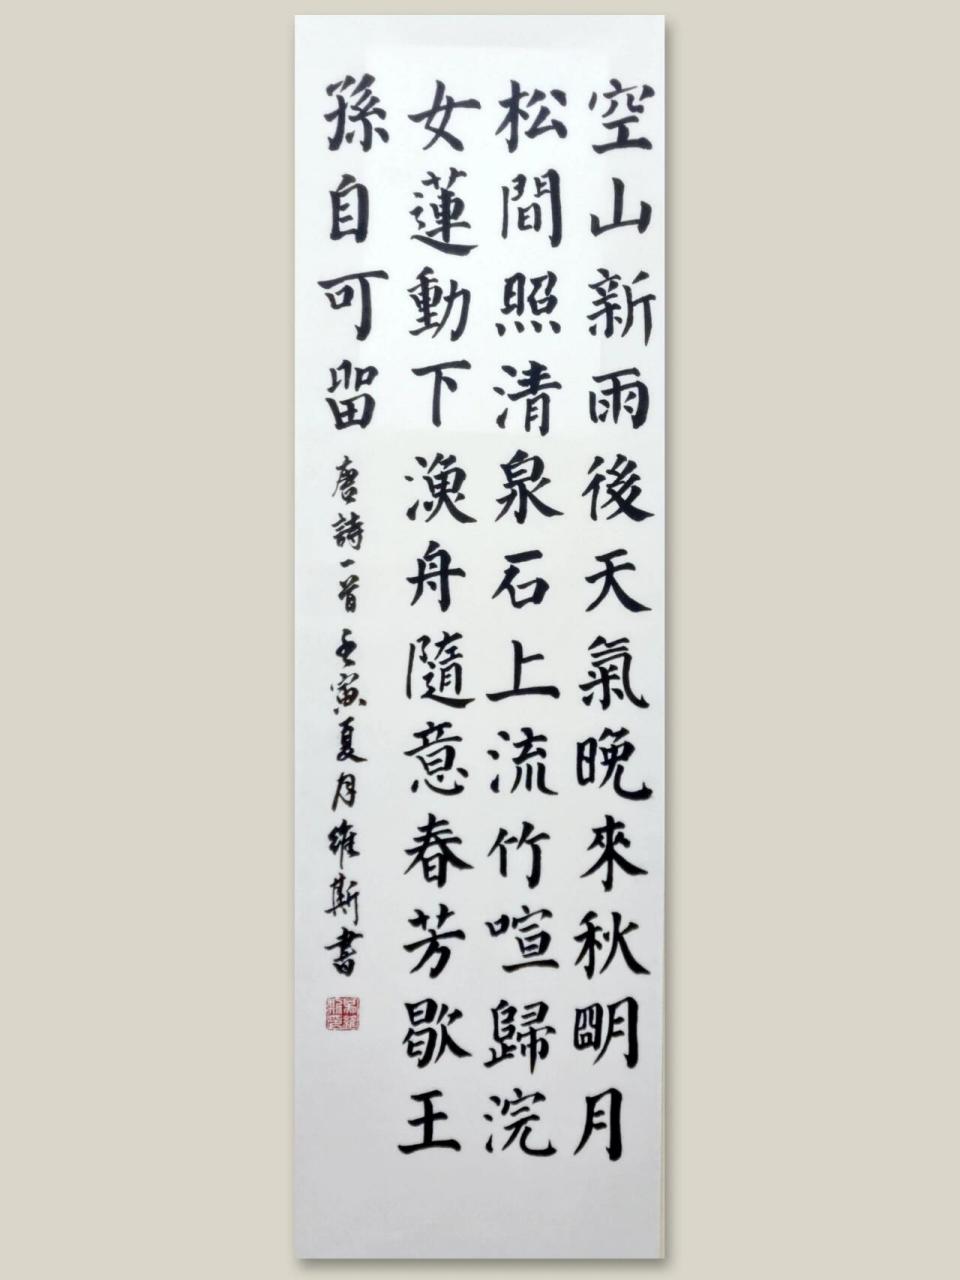 空山新雨後天氣晚來秋明月
松間照清泉石上流竹喧歸浣
女蓮動下漁舟隨意春芳歇王
孫自可留
唐詩一首壬寅夏月維斯書